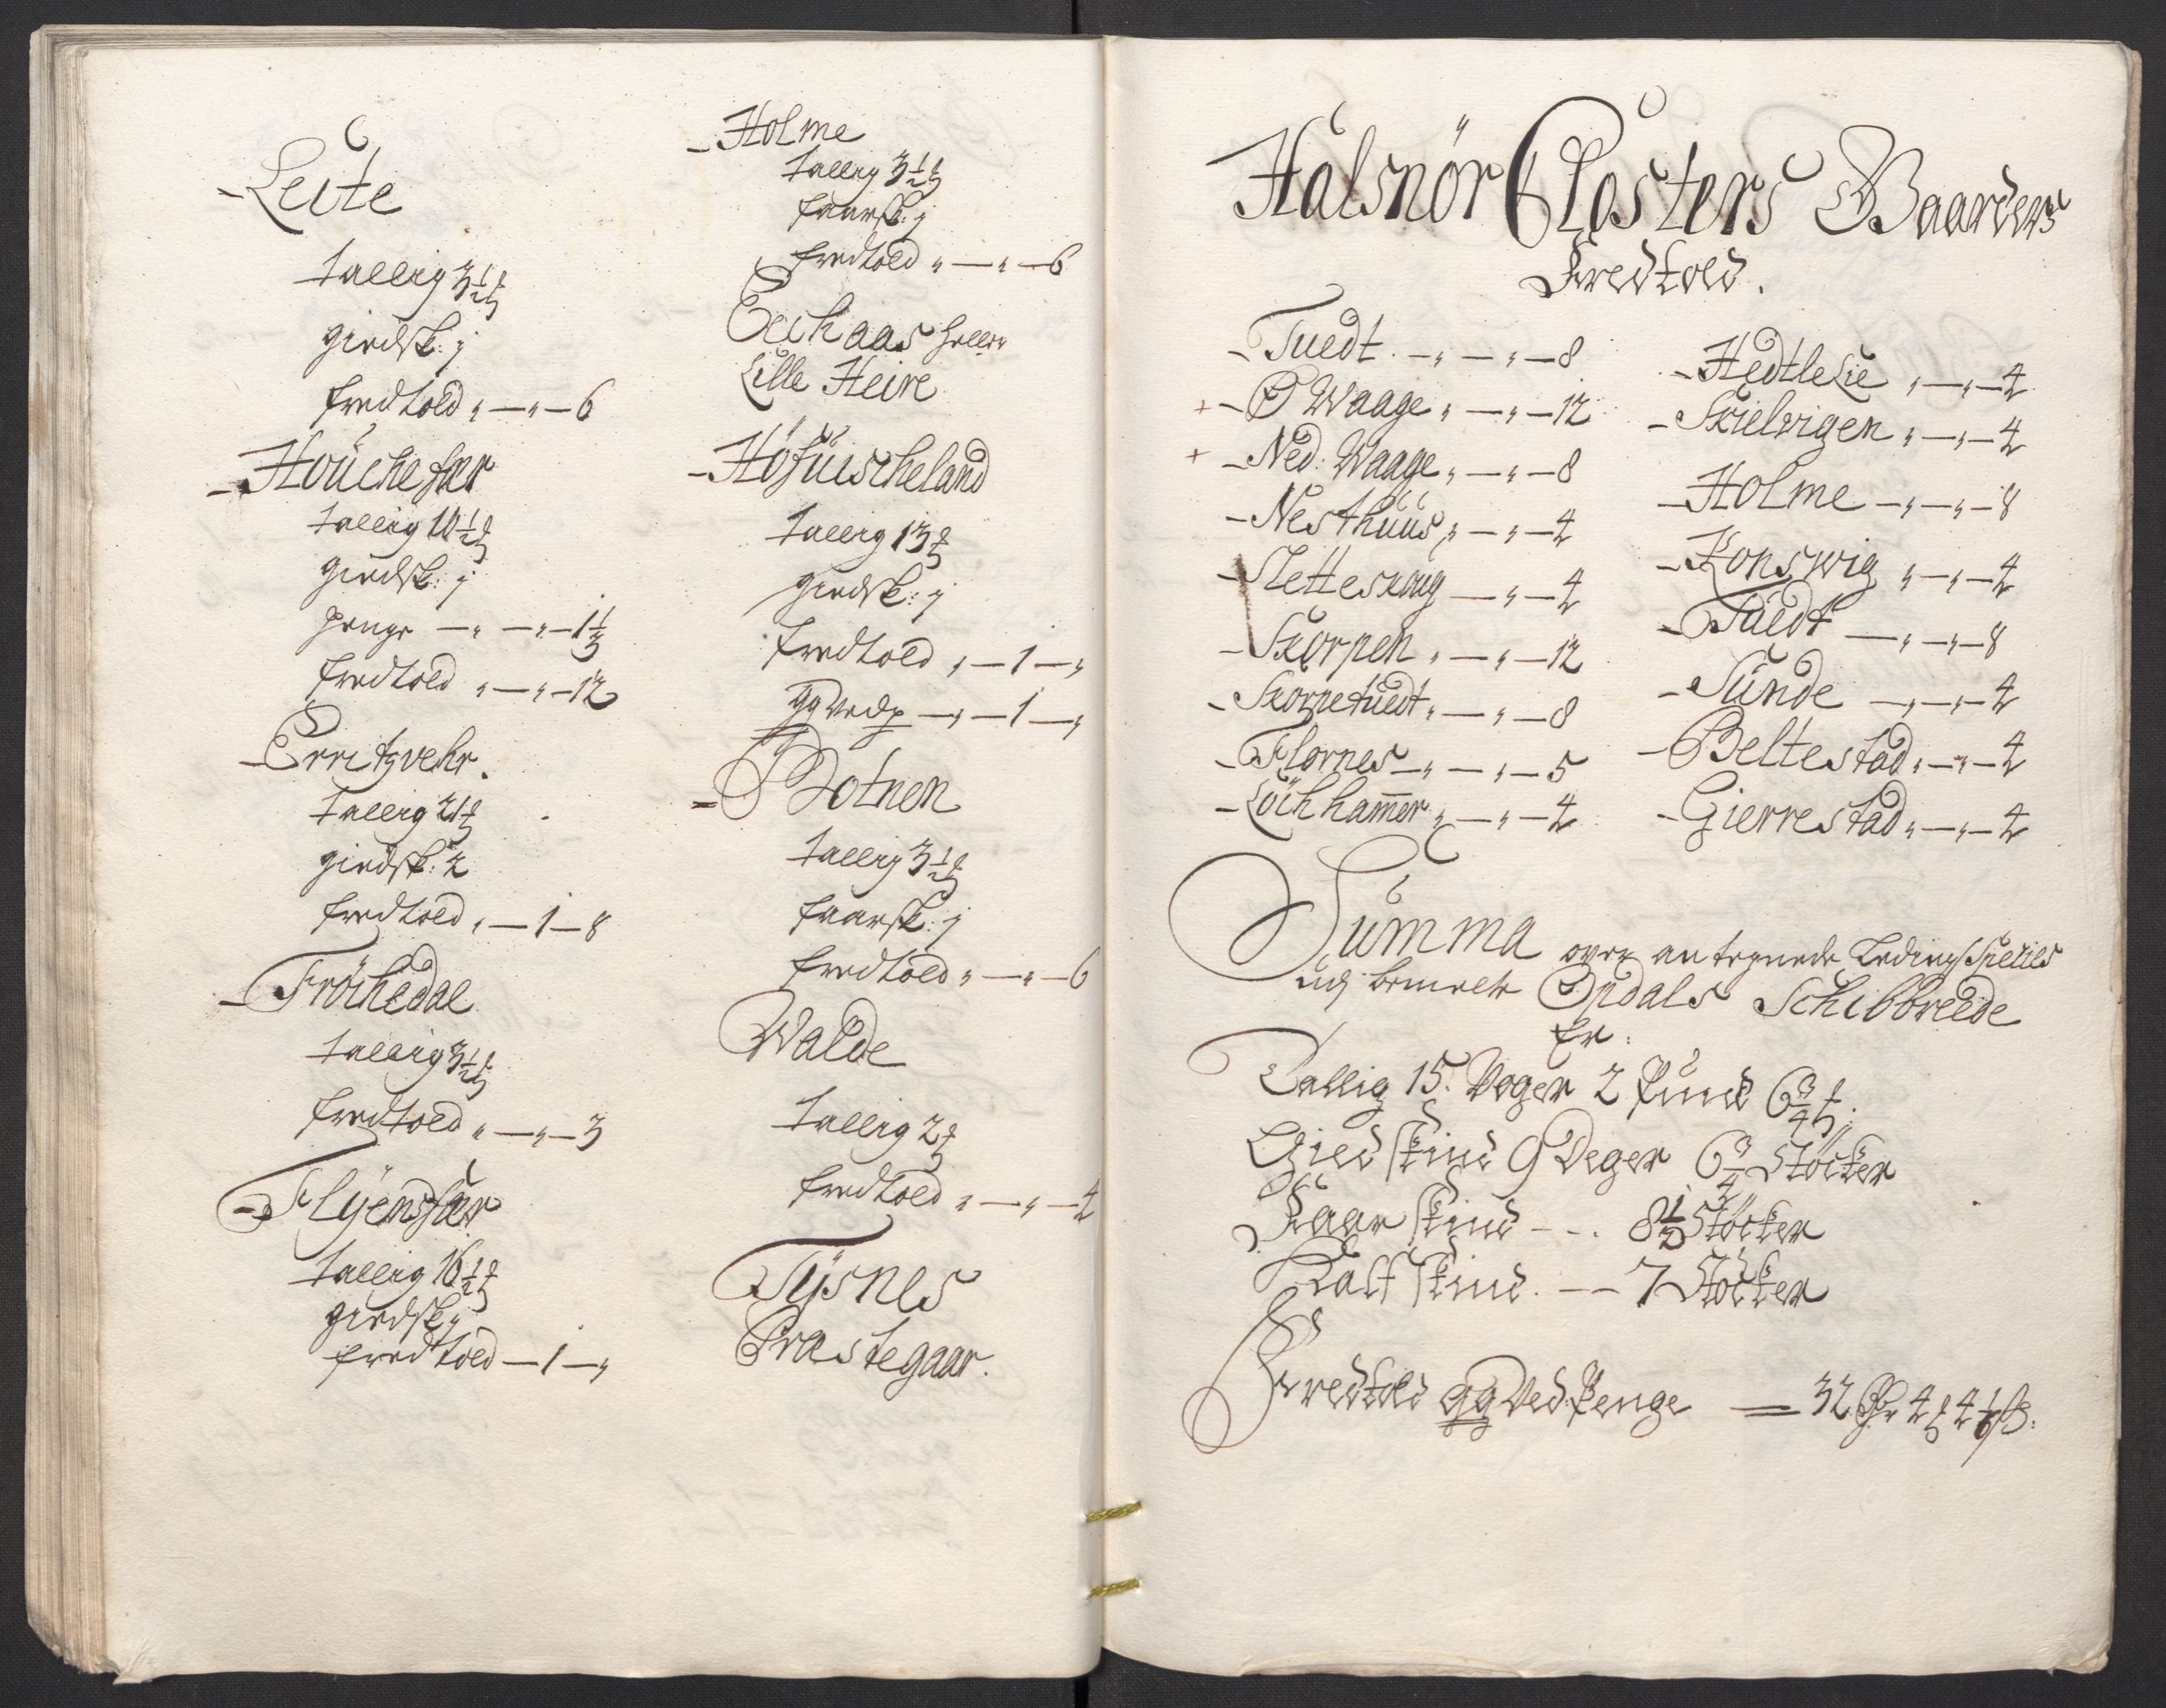 Leite
tallig 3½ ℔
giedsk: j
fredtold „ — „ — 6
Houchefær
tallig 10½ ℔
giedsk: j
penge — „ — „ — 1⅓
fredtold „ — „ — 12
Erritzvehr.
tallig 21 ℔
giedsk: 2
fredtold „ — 1 — 8
Fröchedal
tallig 3½ ℔
fredtold „ — „ — 3
Flÿensfær
tallig 16½ ℔
giedsk j
fredtold — 1 — „
Holme
tallig 3½ ℔
faarsk: j
fredtold „ — „ — 6
Echaas heller
Lille Heire
Höfuischeland
tallig 13 ℔
giedsk: j
fredtold „ — 1 — „
gg Vedp — „ — 1 — „
Botnen
tallig 3½ ℔
faarsk: j
fredtold „ — „ — 6
Walde
tallig 2 ℔
fredtold „ — „ — 4
Tÿsnes
Præstegaar.
Halsnör Closters Gaarders
Fredtold.
Tuedt. — „ — „ — 8
Ø Waage „ — „ — 12
Ned: Waage „ — „ — 8
Nesthuus „ — „ — 4
Netteskoug — „ — 4
Skorpen „ — „ — 12
Skorpetuedt „ — „ — 8
Flornes — „ — „ — 5
Löchhamer „ — „ — 4
Hedtlelie „ — „ — 4
Skielvigen „ — „ — 4
Holme — „ — „ — 8
Konswig „ — „ — 4
Tuedt — „ — „ — 8
Sunde — „ — „ — 4
Beltestad „ — „ — 4
Gierrestad „ — „ — 4
Summa over antegnede Ledings Spetzies
udj bemelte Opdals Schibbreede
Er:
Tallig 15. Voger 2 Pund 6¾ ℔:
Giedskind 9 Deger 6¾ Støcker
Faarskind - - . 8½ Støcker
Kalfskind. — 7 Støcker
Fredtold gg Ved Penge — 32 Dr 4 ℔ 4⅙ ß: